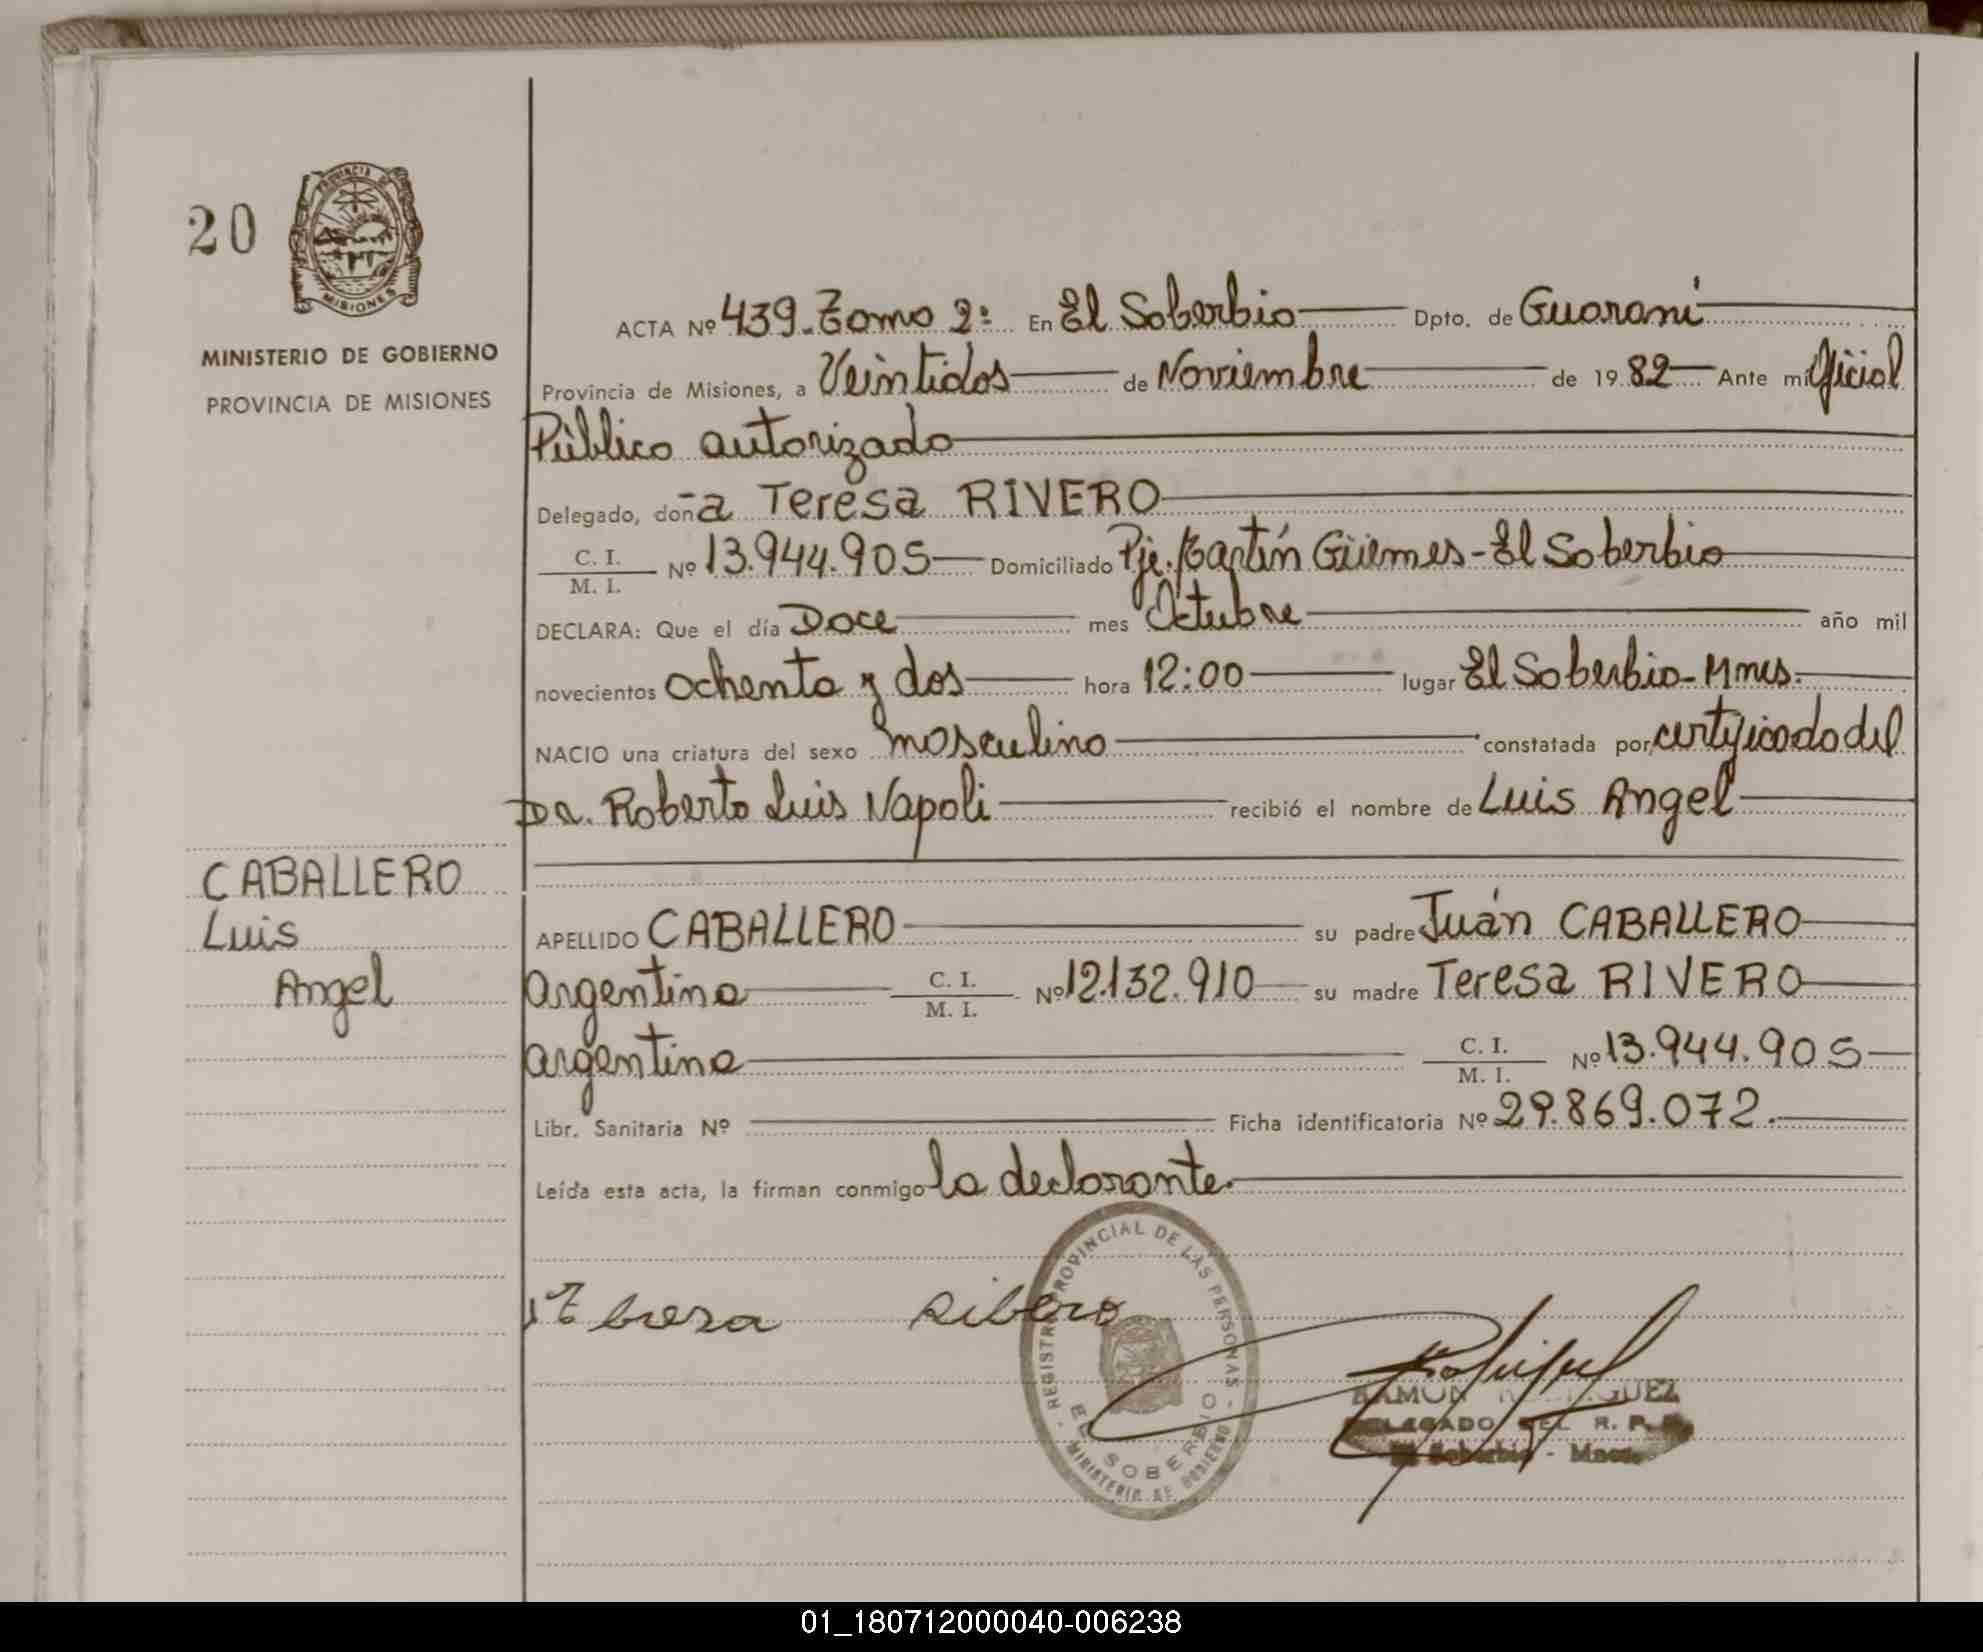 20
PROVINCIA DE
MISIONES
MINISTERIO DE GOBIERNO
PROVINCIA DE MISIONES
ACTA Nº 439. Tomo 2: En El Soberbio Dpto. de Guaraní
Provincia de Misiones, a Veintidos de Noviembre de 1982 Ante mi Oficial
Público autorizado
Delegado, doña Teresa RIVERO
C. I.
M. I. Nº 13.944.905 Domiciliado Pje. Martín Güemes - El Soberbio
DECLARA: Que el día Doce mes Octubre año mil
novecientos ochenta y dos hora 12:00 lugar El Soberbio - Mnes.
NACIO una criatura del sexo masculino constatada por certificado del
Dr. Roberto Luis Napoli recibió el nombre de Luis Angel
CABALLERO
Luis
Angel
APELLIDO CABALLERO su padre Juán CABALLERO
Argentino C. I.
M. I. Nº 12.132.910 su madre Teresa RIVERO
argentina C. I.
M. I. Nº 13.944.905
Libr. Sanitaria Nº Ficha identificatoria Nº 29.869.072.
Leída esta acta, la firman conmigo la declarante.
Ribero
REGISTRO PROVINCIAL DE LAS PERSONAS
EL SOBERBIO
MINISTERIO DE GOBIERNO
DELEGADO DEL R. P.
El Soberbio - Mnes
01_180712000040-006238